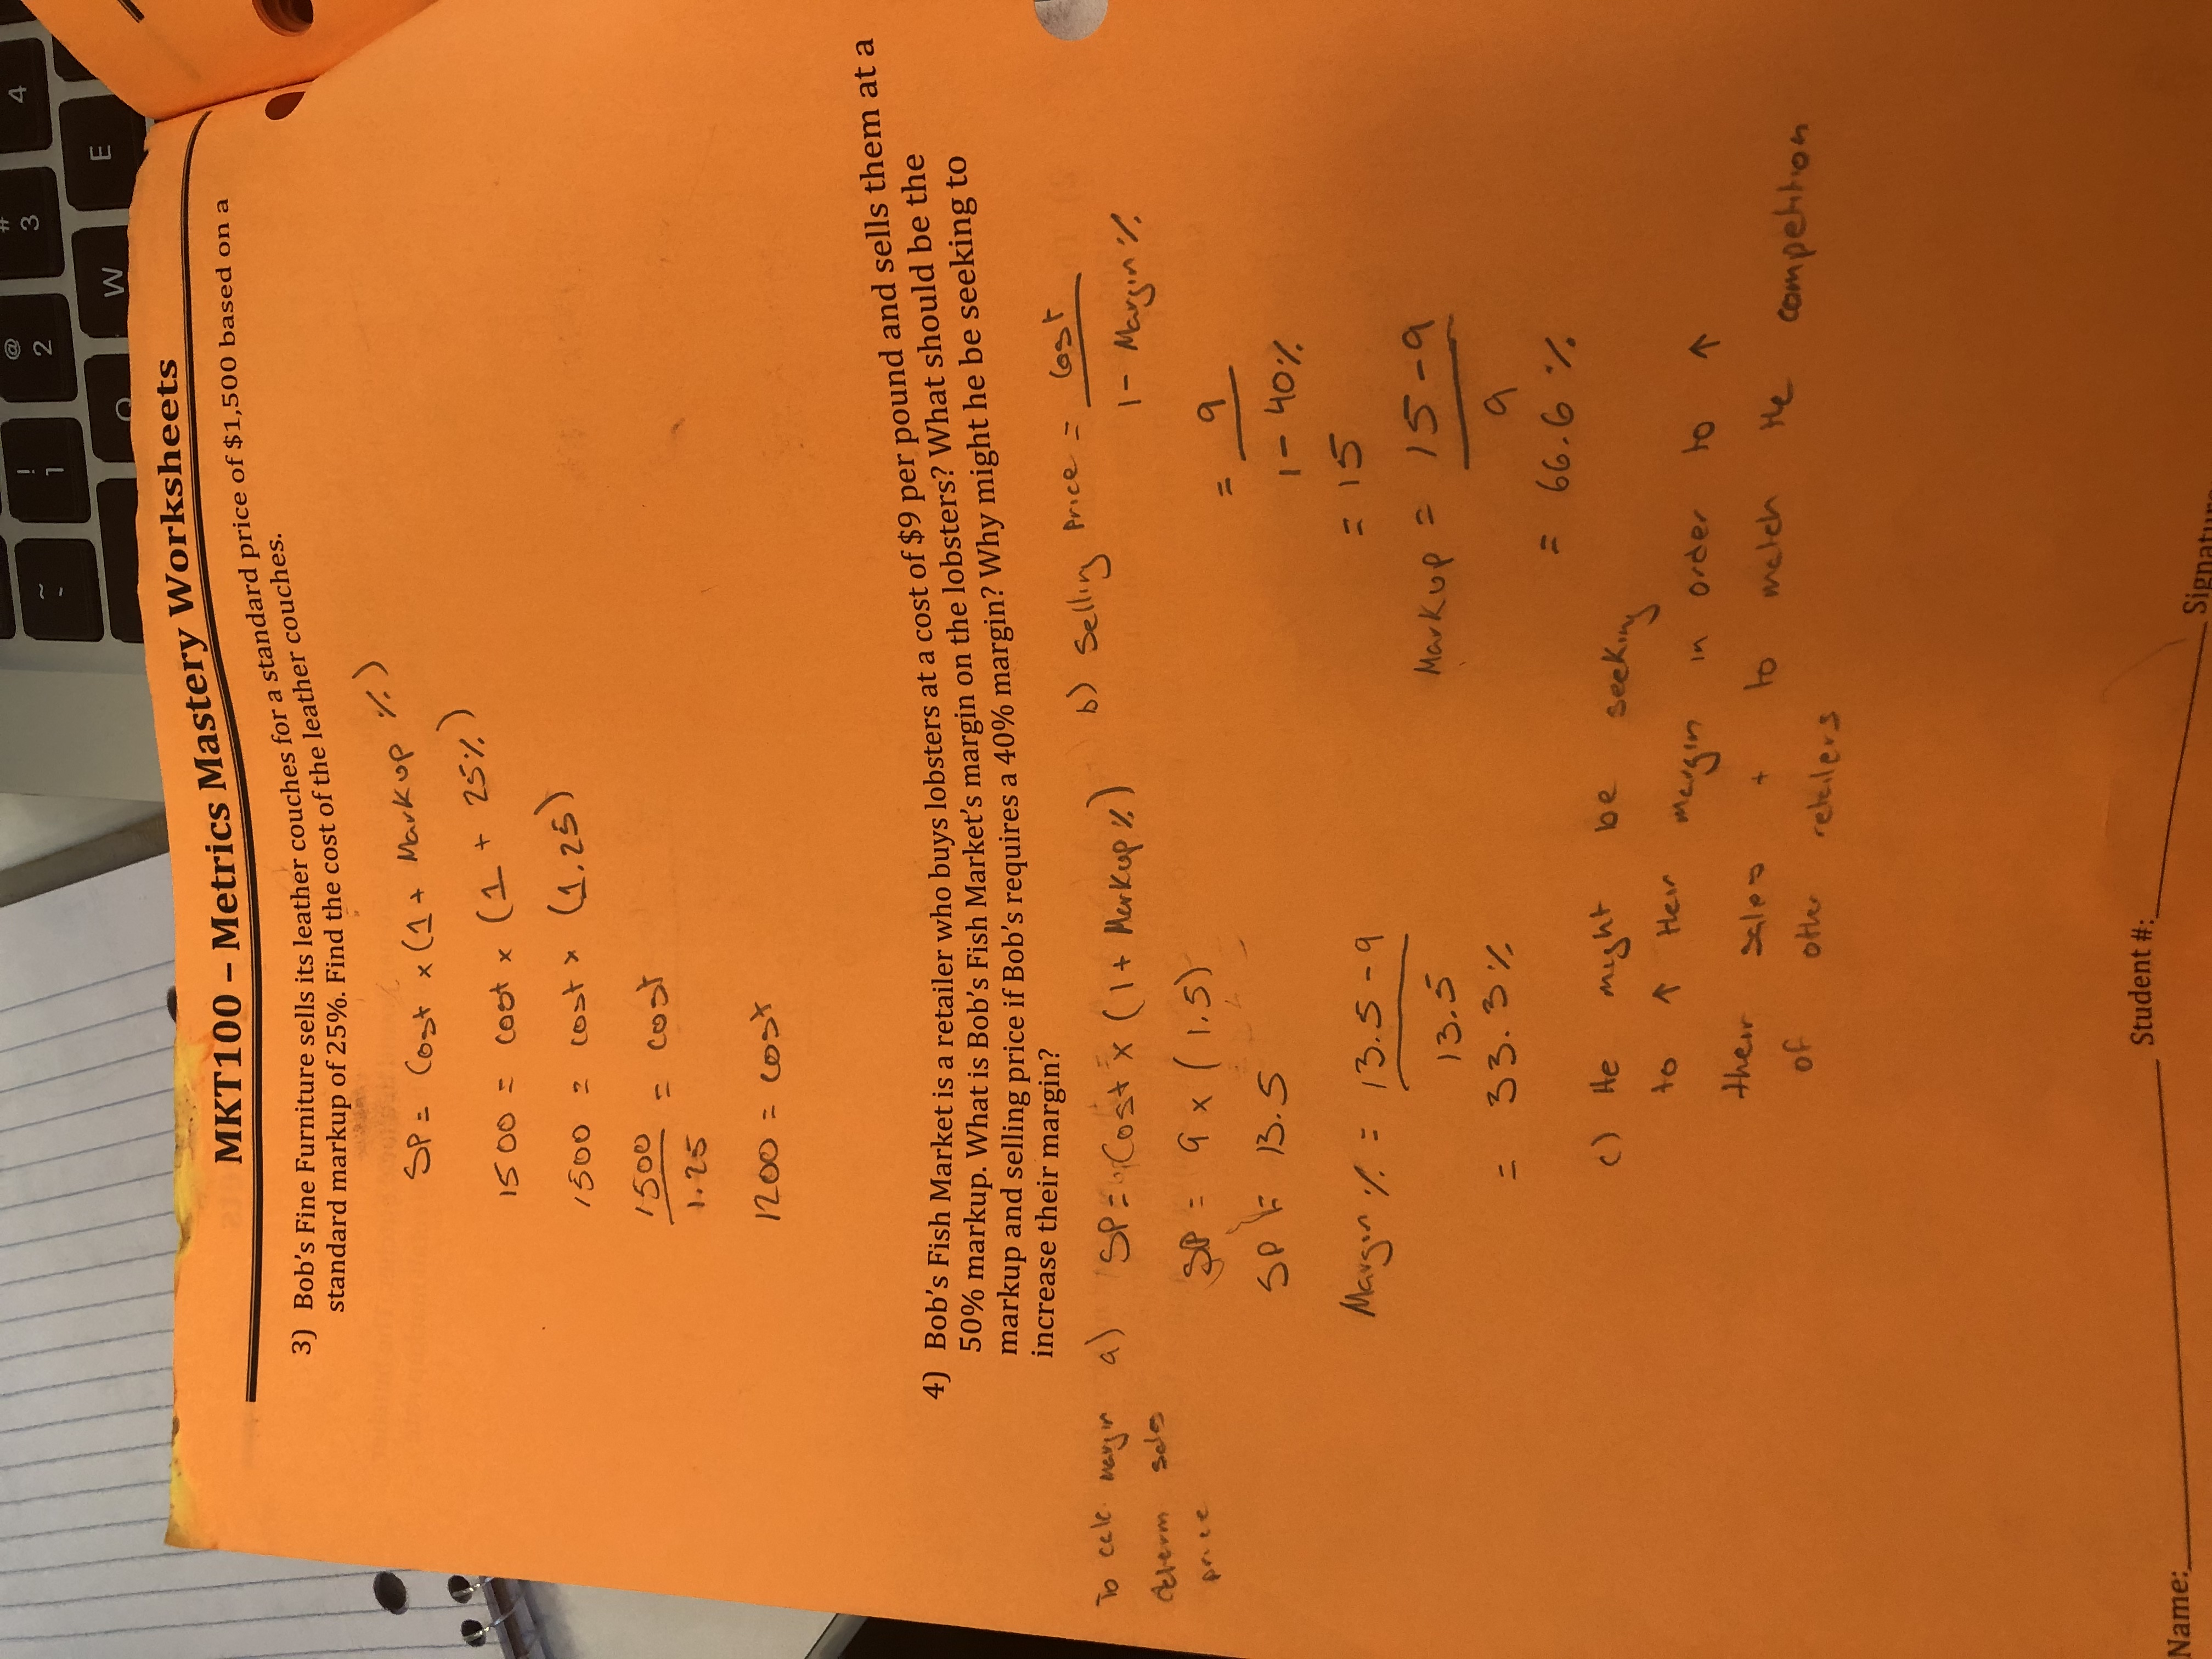 MKT100 – Metrics Mastery Worksheets
3) Bob's Fine Furniture sells its leather couches for a standard price of $1,500 based on a
standard markup of 25%. Find the cost of the leather couches.
SP = Cost x (1 + Markup %)
1500 = cost x (1 + 25%)
1500 = cost x (1.25)
1500 = cost
1.25
1200 = cost
4) Bob's Fish Market is a retailer who buys lobsters at a cost of $9 per pound and sells them at a
50% markup. What is Bob's Fish Market's margin on the lobsters? What should be the
markup and selling price if Bob's requires a 40% margin? Why might he be seeking to
increase their margin?
To calc margin
determ sales
price
a) SP = Cost x (1 + Markup %)
SP = 9 x (1.5)
SP = 13.5
Margin % = 13.5 - 9
13.5
= 33.3%
b) Selling Price = Cost
1 - Margin %
= 9
1 - 40%
= 15
Markup = 15 - 9
9
= 66.6 %
c) He might be seeking
to ↑ their margin in order to ↑
their sales + to match the competition
of other retailers
Name: Student #: Signature
~
`
!
1
@
2
#
3
4
Q
W
E